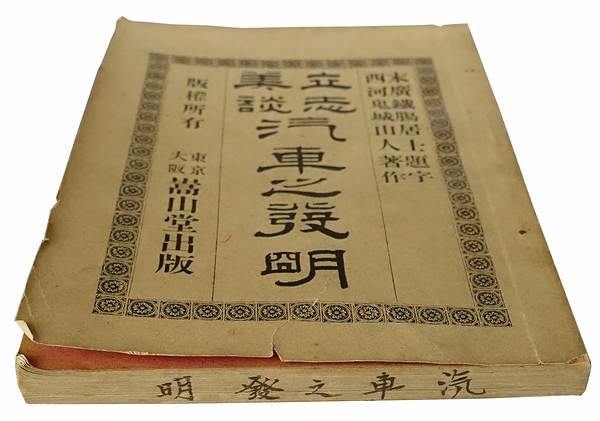 末廣鐵腸居士題字
西河鬼城山人著作
立志
美談
汽車之發明
版權所有
東京
大阪
嵩山堂出版
汽車之發明